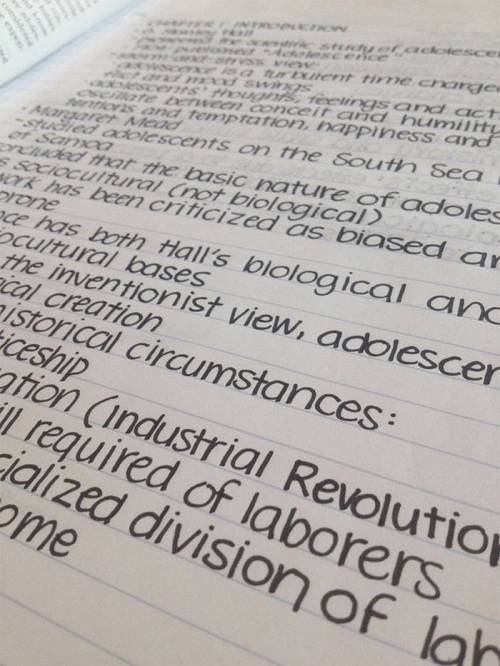 CHAPTER 1: INTRODUCTION
- G. Stanley Hall
- pioneered the scientific study of adolescen
- 1904: published "Adolescence"
- storm-and-stress view
- adolescence is a turbulent time charge
flict and mood swings
- adolescents' thoughts, feelings and act
oscillate between conceit and humilit
tentions and temptation, happiness and
- Margaret Mead
- studied adolescents on the South Sea
of Samoa
oncluded that the basic nature of adoles
s sociocultural (not biological)
work has been criticized as biased an
prone
ce has both Hall's biological and
iocultural bases
the inventionist view, adolescen
ical creation
historical circumstances:
ticeship
ation (Industrial Revolution
ill required of laborers
cialized division of lab
ome